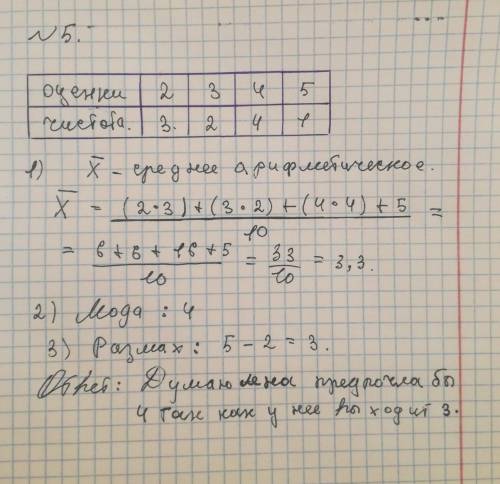 № 5.
оценки 2 3 4 5
чистота. 3. 2 4 1
1) X̅ – среднее арифметическое.
X̅ = (2·3)+(3·2)+(4·4)+5 / 10 =
= 6+6+16+5 / 10 = 33 / 10 = 3,3.
2) Мода : 4
3) Размах : 5 – 2 = 3.
Ответ: Думаю Лена предпочла бы
4 так как у нее выходит 3.